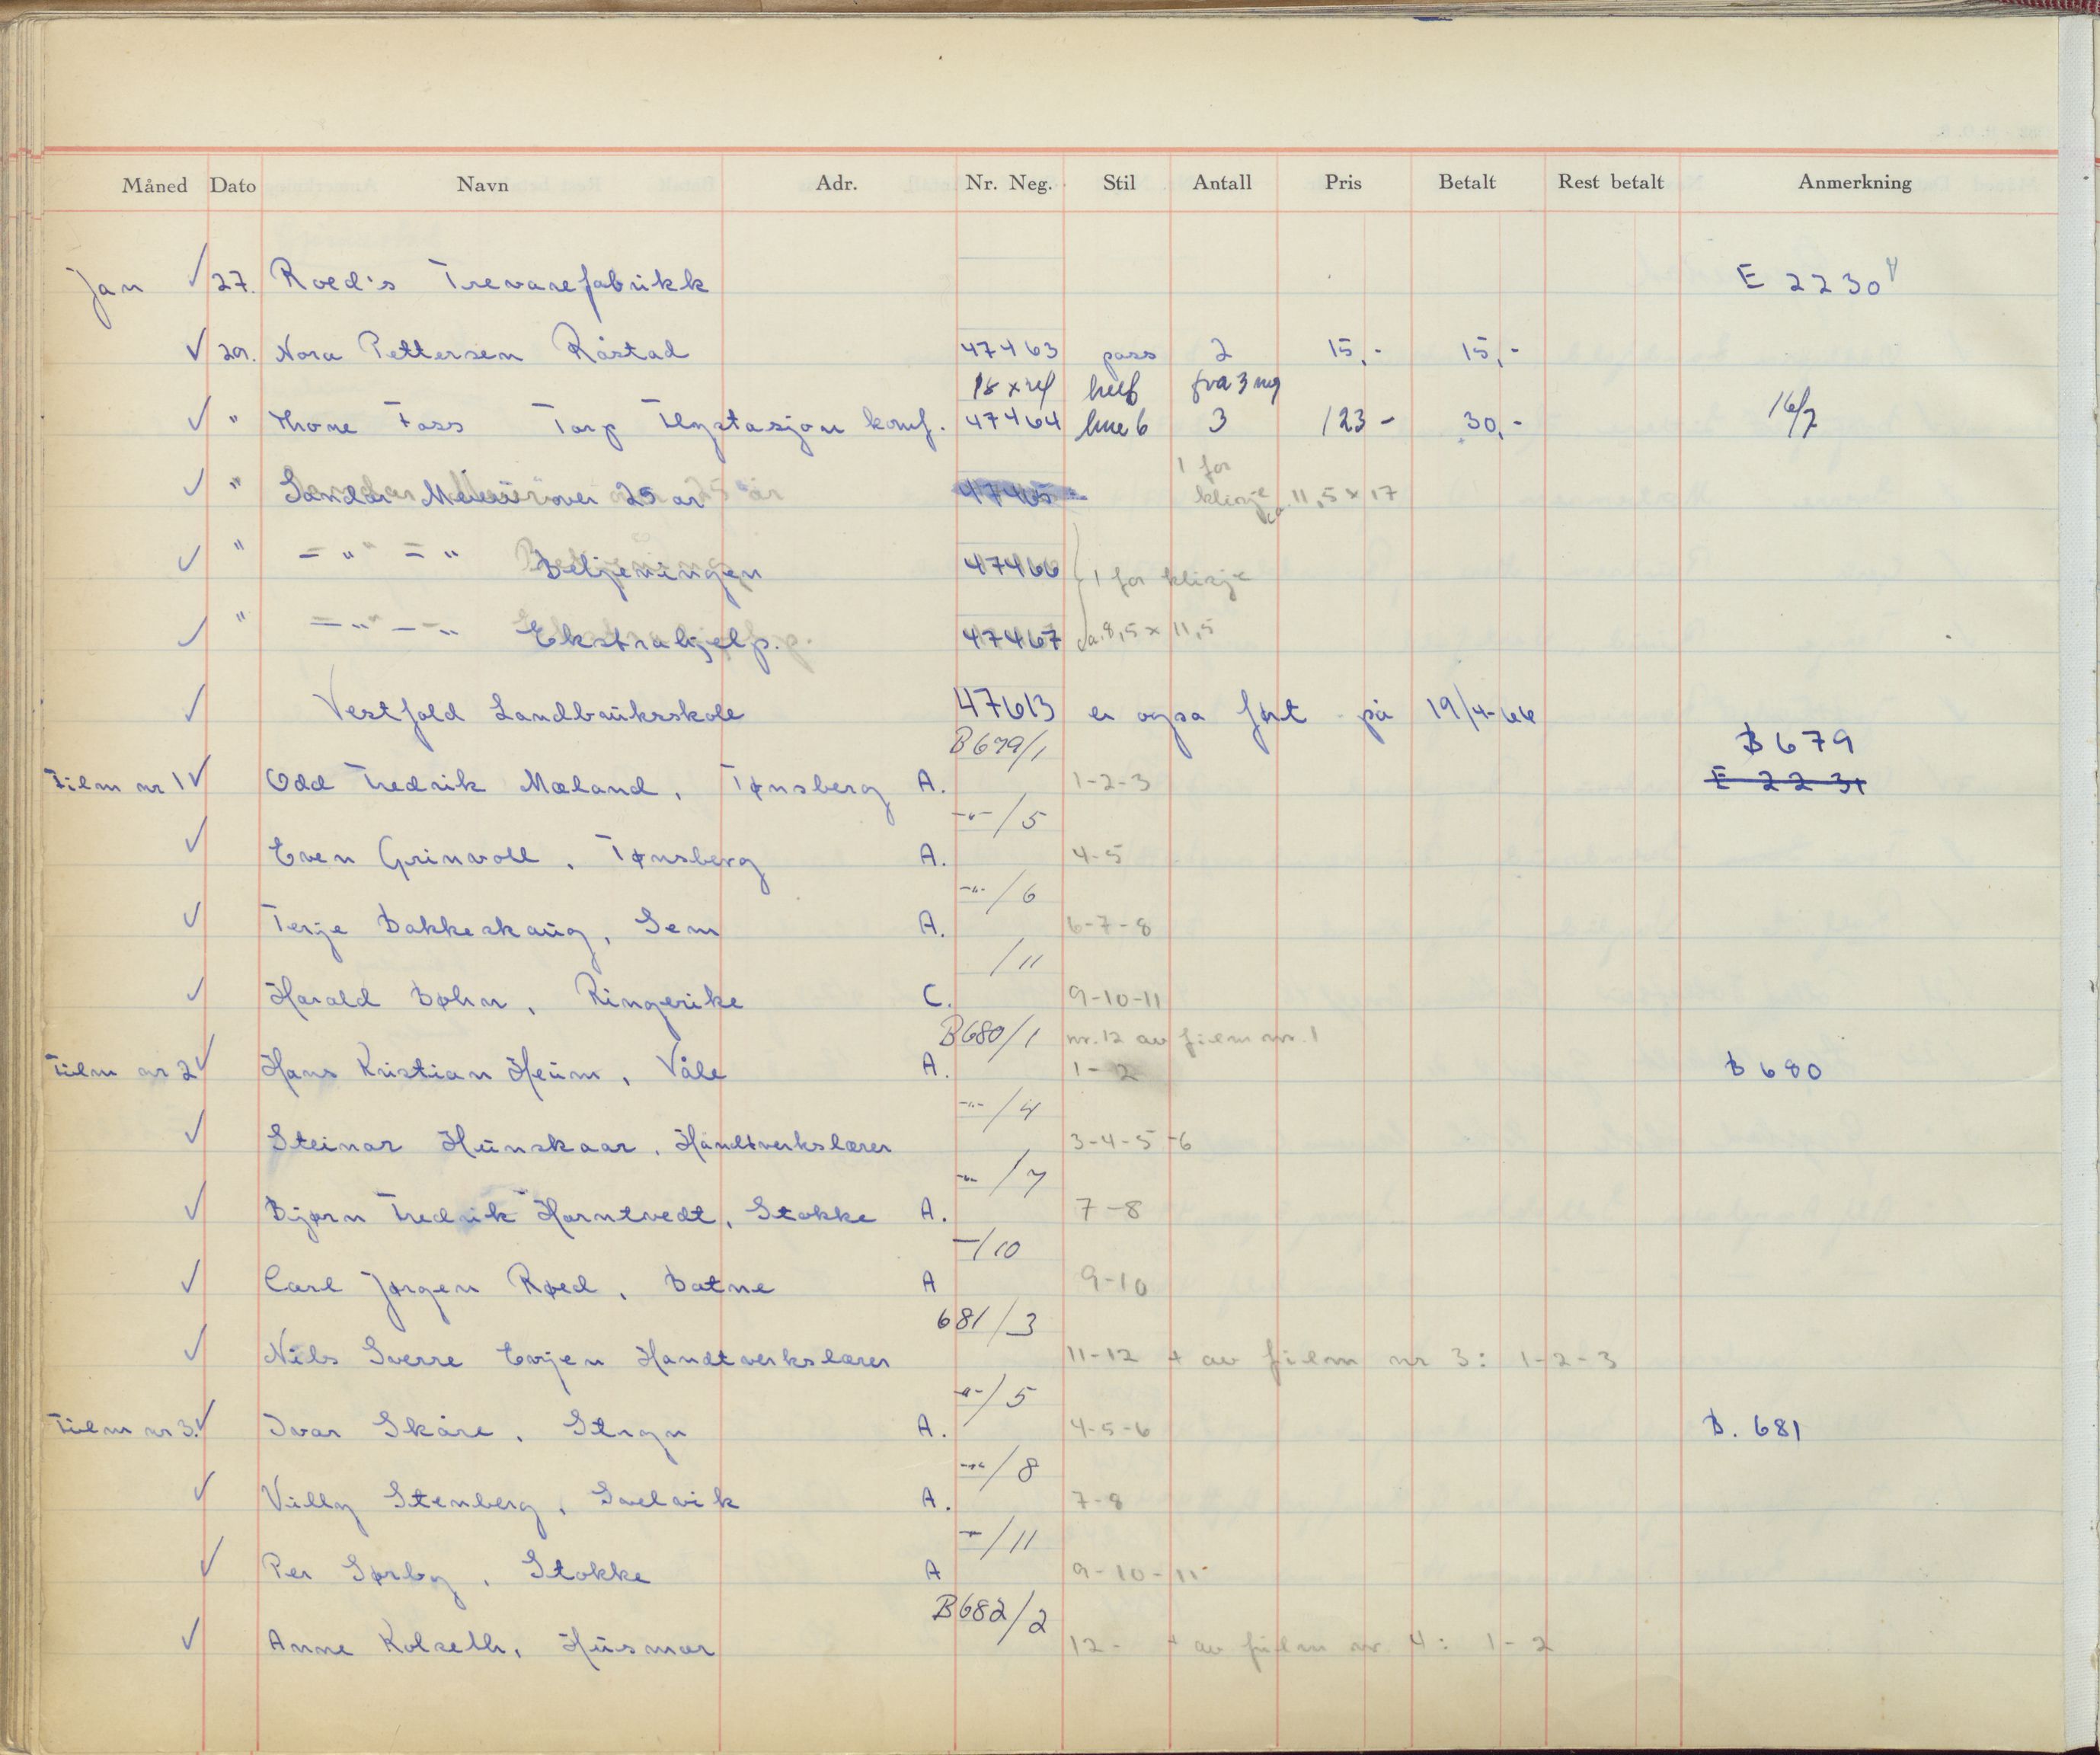 Måned Dato Navn Adr. Nr. Neg. Stil Antall Pris Betalt Rest betalt Anmerkning
Jan 27. Roed's Trevarefabrikk E 2230
29. Nora Pettersen Råstad 47463 pass 2 15,- 15,-
18 x 24 helf fra 3 ng
" Mone Foss Torp Flystasjon konf. 47464 hne 6 3 123- 30,- 16/7
1 for
" Sandar Meieri over 25 år 47465 klisje ca. 11,5 x 17
" - " - " Betjeningen 47466 1 for klisje
" - " - " Ekstrahjelp. 47467 ca. 8,5 x 11,5
Vestfold Landbruksskole 47613 er også ført på 19/4-66
B 679/1 B 679
Film nr 1 Odd Fredrik Mæland, Tønsberg A. 1-2-3 E 2231
-"-/5
Even Grinvoll, Tønsberg A. 4-5
-"-/6
Terje Bakkeskaug, Sem A. 6-7-8
/11
Harald Bøhn, Ringerike C. 9-10-11
B680/1 nr. 12 av film nr. 1
Film nr 2 Hans Kristian Heum, Våle A. 1-2 B 680
-"-/4
Steinar Hunskaar, Håndtverkslærer 3-4-5-6
-"-/7
Bjørn Fredrik Horntvedt, Stokke A. 7-8
-/10
Carl Jørgen Røed, Botne A 9-10
681/3
Nils Sverre Evjen Handtverkslærer 11-12 + av film nr 3: 1-2-3
-"-/5
Film nr 3. Ivar Skåre, Stryn A. 4-5-6 B. 681
-"-/8
Villy Stenberg, Svelvik A. 7-8
-"-/11
Per Sørby, Stokke A 9-10-11
B682/2
Anne Kolseth, Husmor 12- + av film nr. 4: 1-2